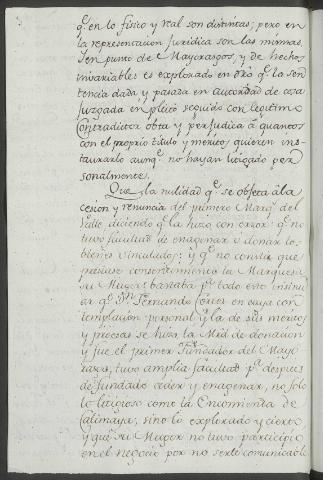 q.e en lo fisico y real son distintas; pero en
la representacion juridica son las mismas.
Y en punto de Mayorazgos, y de hechos
invariables es explorado en dro q.e la sen
tencia dada y pasada en autoridad de cosa
juzgada en pleito seguido con legitimo
Contradictor obta y perjudica à quantos
con el proprio titulo y merito, quieren ins-
taurarlo aunq.e no hayan litigado per
sonalmente.
Que la nulidad q.e se objeta à la
cesion y renuncia del primero Marq.s del
Valle diciendo q.e la hizo con error: q.e no
tuvo facultad de enagenar o donar los
bienes vinculados; y q.e no consta que
prestase consentimiento la Marquesa
su Muger bastaba p.a todo esto insinu
ar q.e D.n Fernando Cortes en cuya con
templacion personal y la de sus meritos
y proezas se hizo la Mrd de donacion
y fue el primer Fundador del Mayo
razgo, tuvo amplia facultad p.a despues
de fundado ceder y enagenar, no solo
lo litigioso como la Encomienda de
Calimaya, sino lo explorado y cierto
y que su Muger no tuvo participio
en el negocio por no serle comunicable